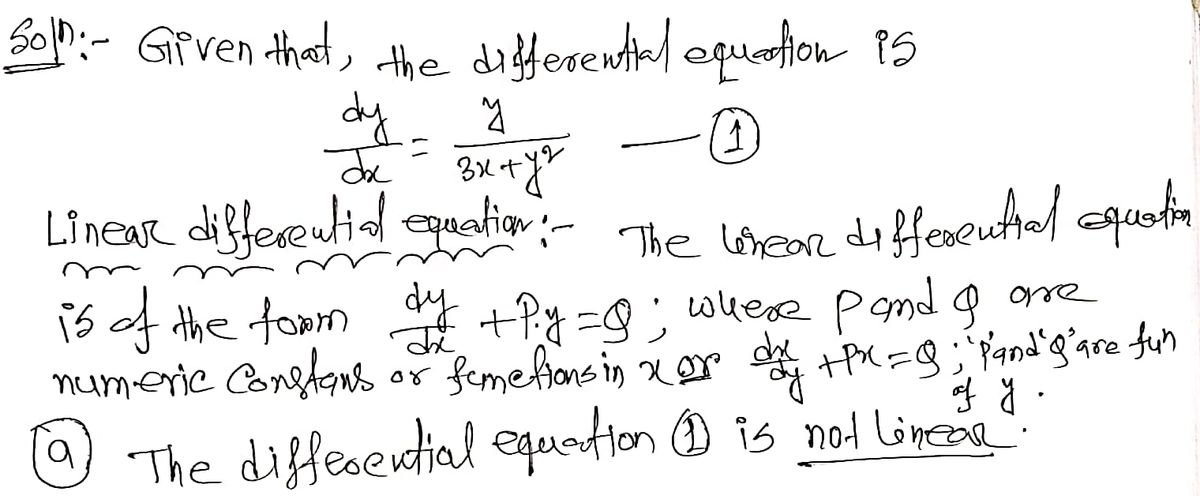 Soln:- Given that, the differential equation is
dy/dx = y/(3x+y²) — ①
Linear differential equation:- The linear differential equation
is of the form dy/dx + P.y = Q ; where P and Q are
numeric constants or functions in x or dx/dy + Px = Q ; 'P' and 'Q' are fun
of y.
ⓐ The differential equation ① is not linear.